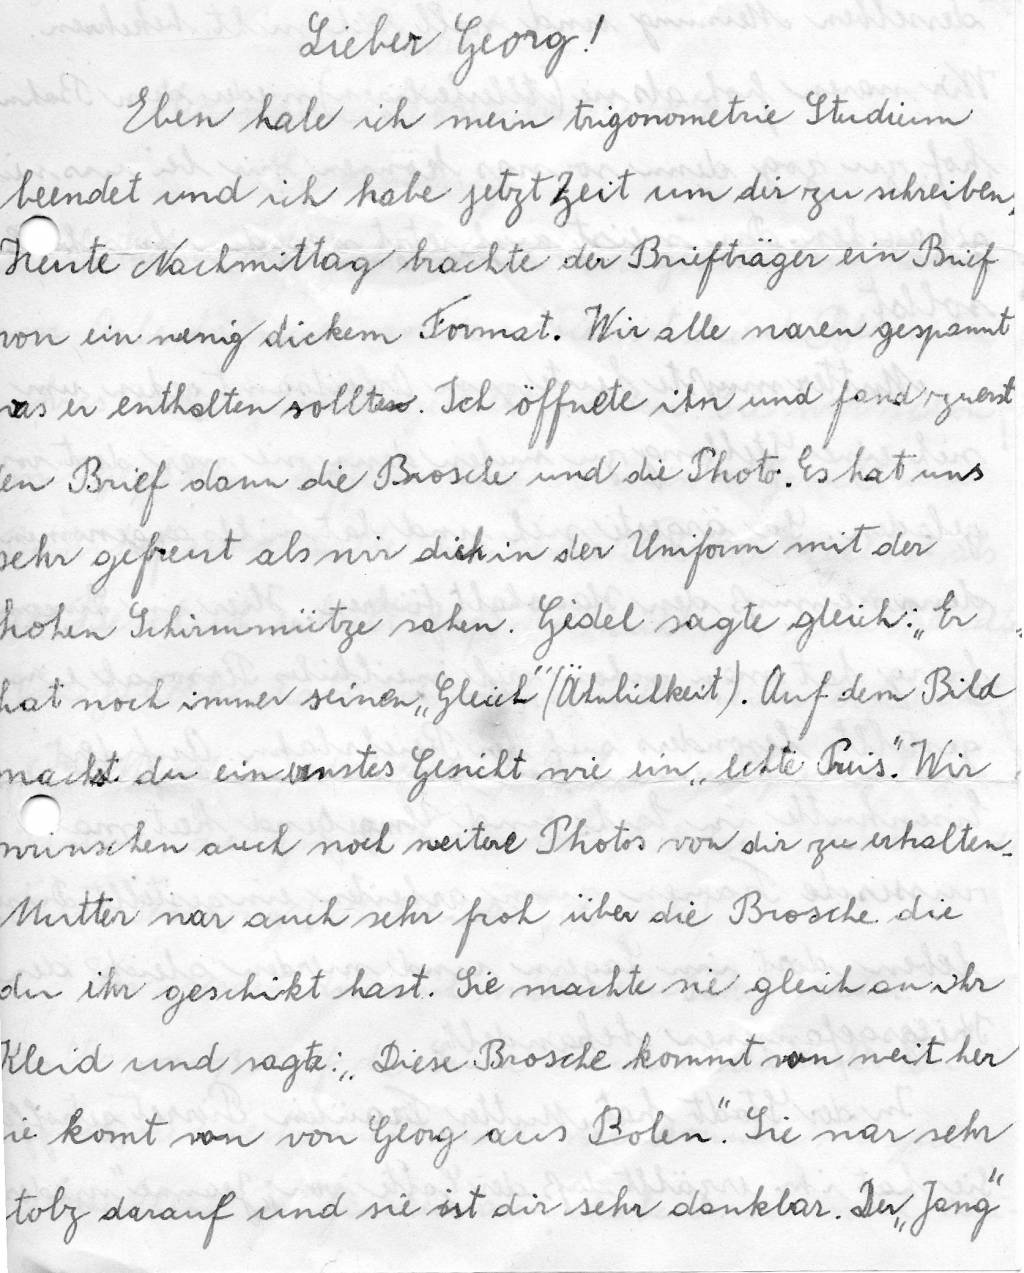 Lieber Georg!
Eben habe ich mein trigonometrie Studium
beendet und ich habe jetzt Zeit um dir zu schreiben.
Heute Nachmittag brachte der Briefträger ein Brief
von ein wenig dickem Format. Wir alle waren gespannt
was er enthalten sollte. Ich öffnete ihn und fand zuerst
en Brief dann die Brosche und die Photo. Es hat uns
sehr gefreut als wir dich in der Uniform mit der
hohen Schirmmütze sahen. Gedel sagte gleich: „Er
hat noch immer seinen „Gleich“ (Ähnlichkeit). Auf dem Bild
machst du ein ernstes Gesicht wie ein „echte Preis“. Wir
wünschen auch noch weitere Photos von dir zu erhalten.
Mutter war auch sehr froh über die Brosche die
du ihr geschikt hast. Sie machte sie gleich an ihr
Kleid und sagte: „Diese Brosche kommt von weit her
ie komt von von Georg aus Bolen“. Sie war sehr
tolz darauf und sie ist dir sehr dankbar. Der „Jang“